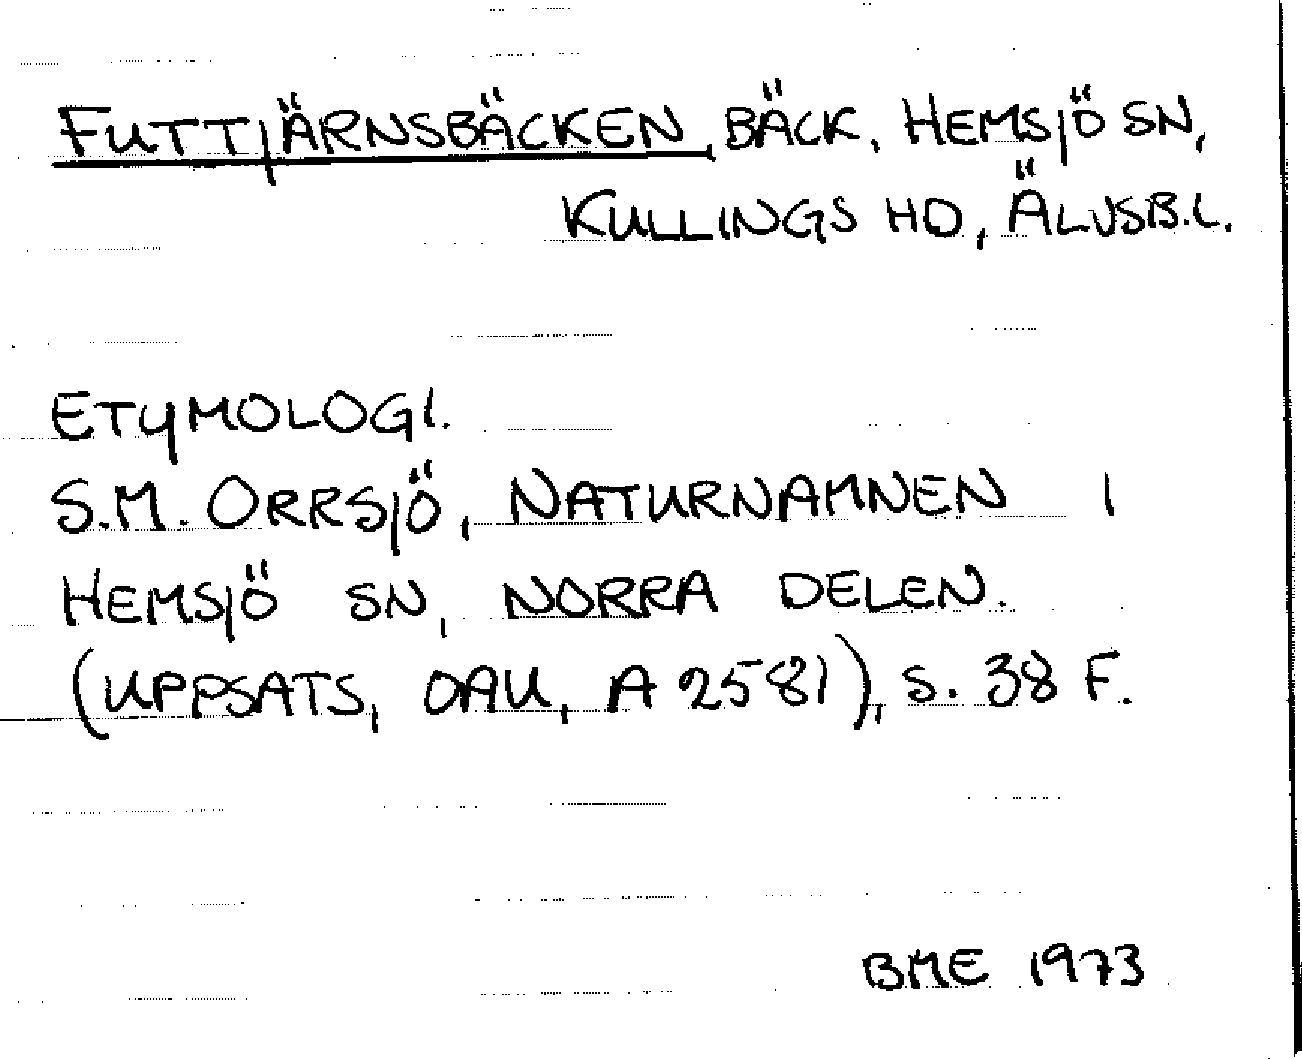 FUTTJÄRNSBÄCKEN, BÄCK, HEMSJÖ SN,
KULLINGS HD, ÄLVSB.L.
ETYMOLOGI.
S.M. ORRSJÖ, NATURNAMNEN I
HEMSJÖ SN, NORRA DELEN.
(UPPSATS, OAU, A 2581), S. 38 F.
BME 1973